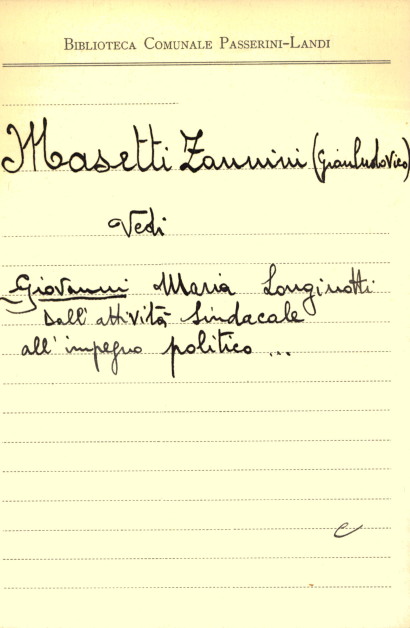 BIBLIOTECA COMUNALE PASSERINI-LANDI
Masetti Zannini (Gianludovico)
Vedi
Giovanni Maria Longinotti
dall'attività sindacale
all'impegno politico ...
c